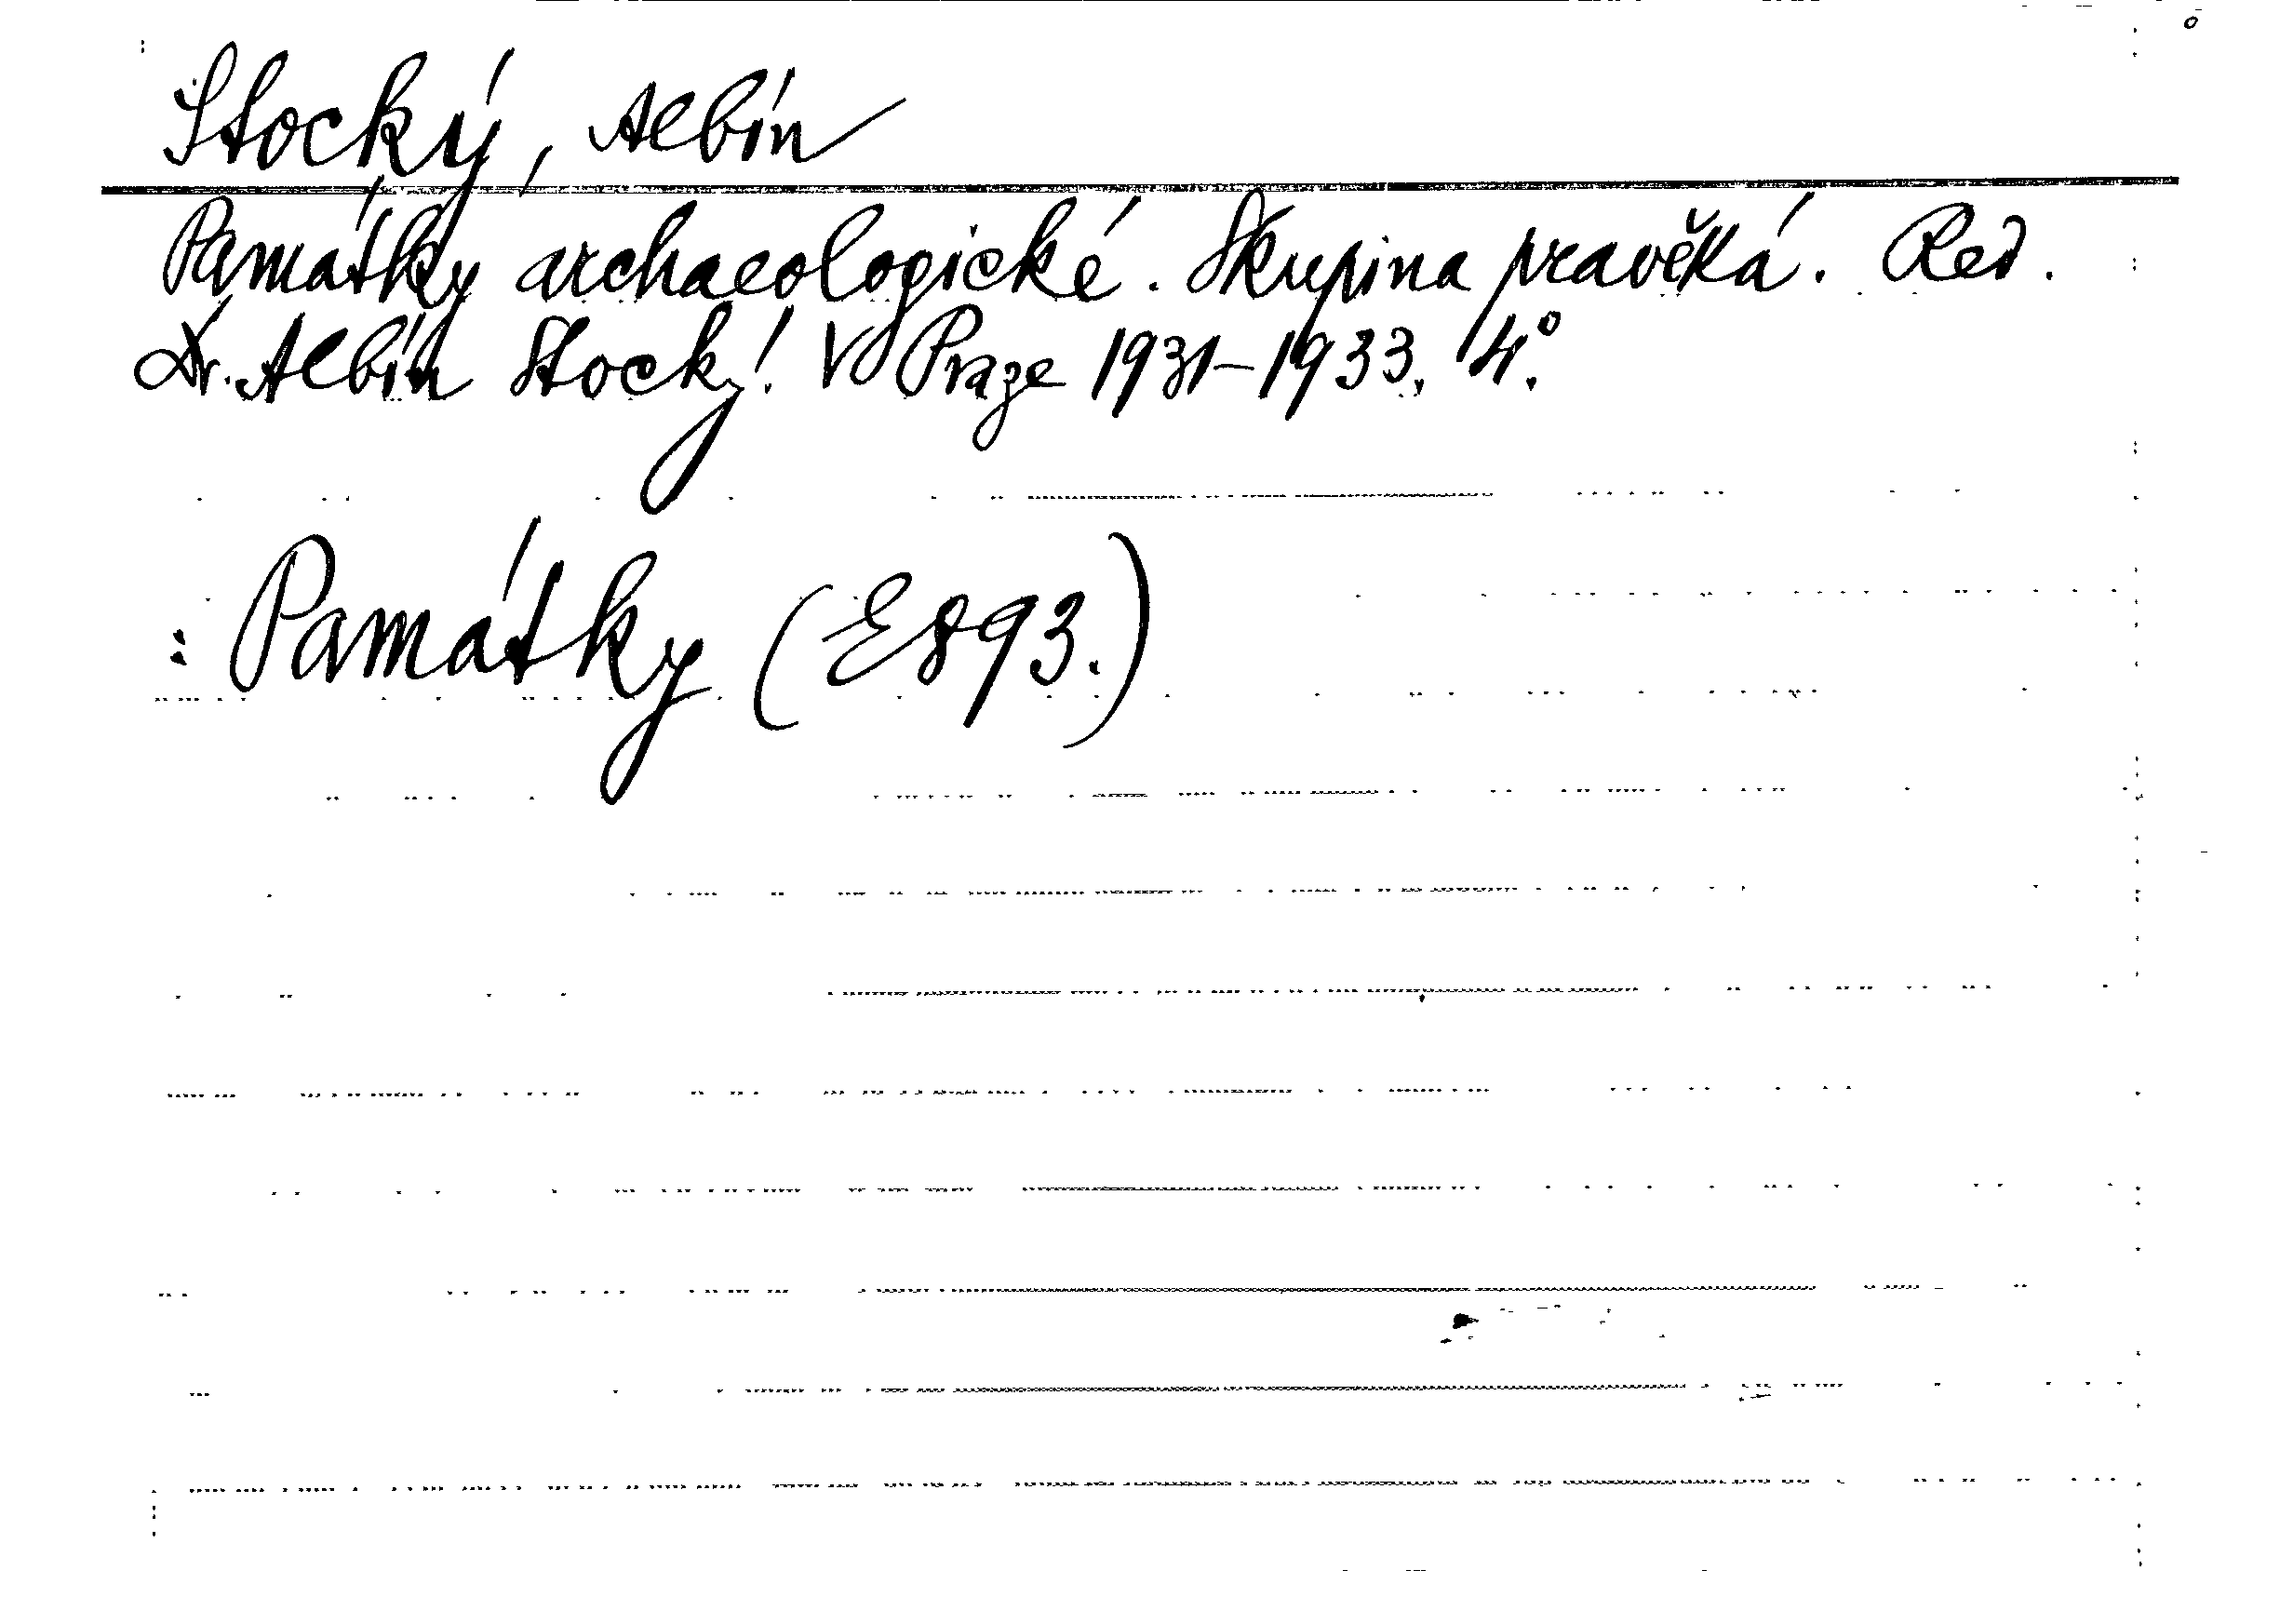 Stocký, Albín
Památky archaeologické. Skupina pravěká. Red.
Dr. Albín Stocký. V Praze 1931-1933. 4°.
: Památky (E893.)